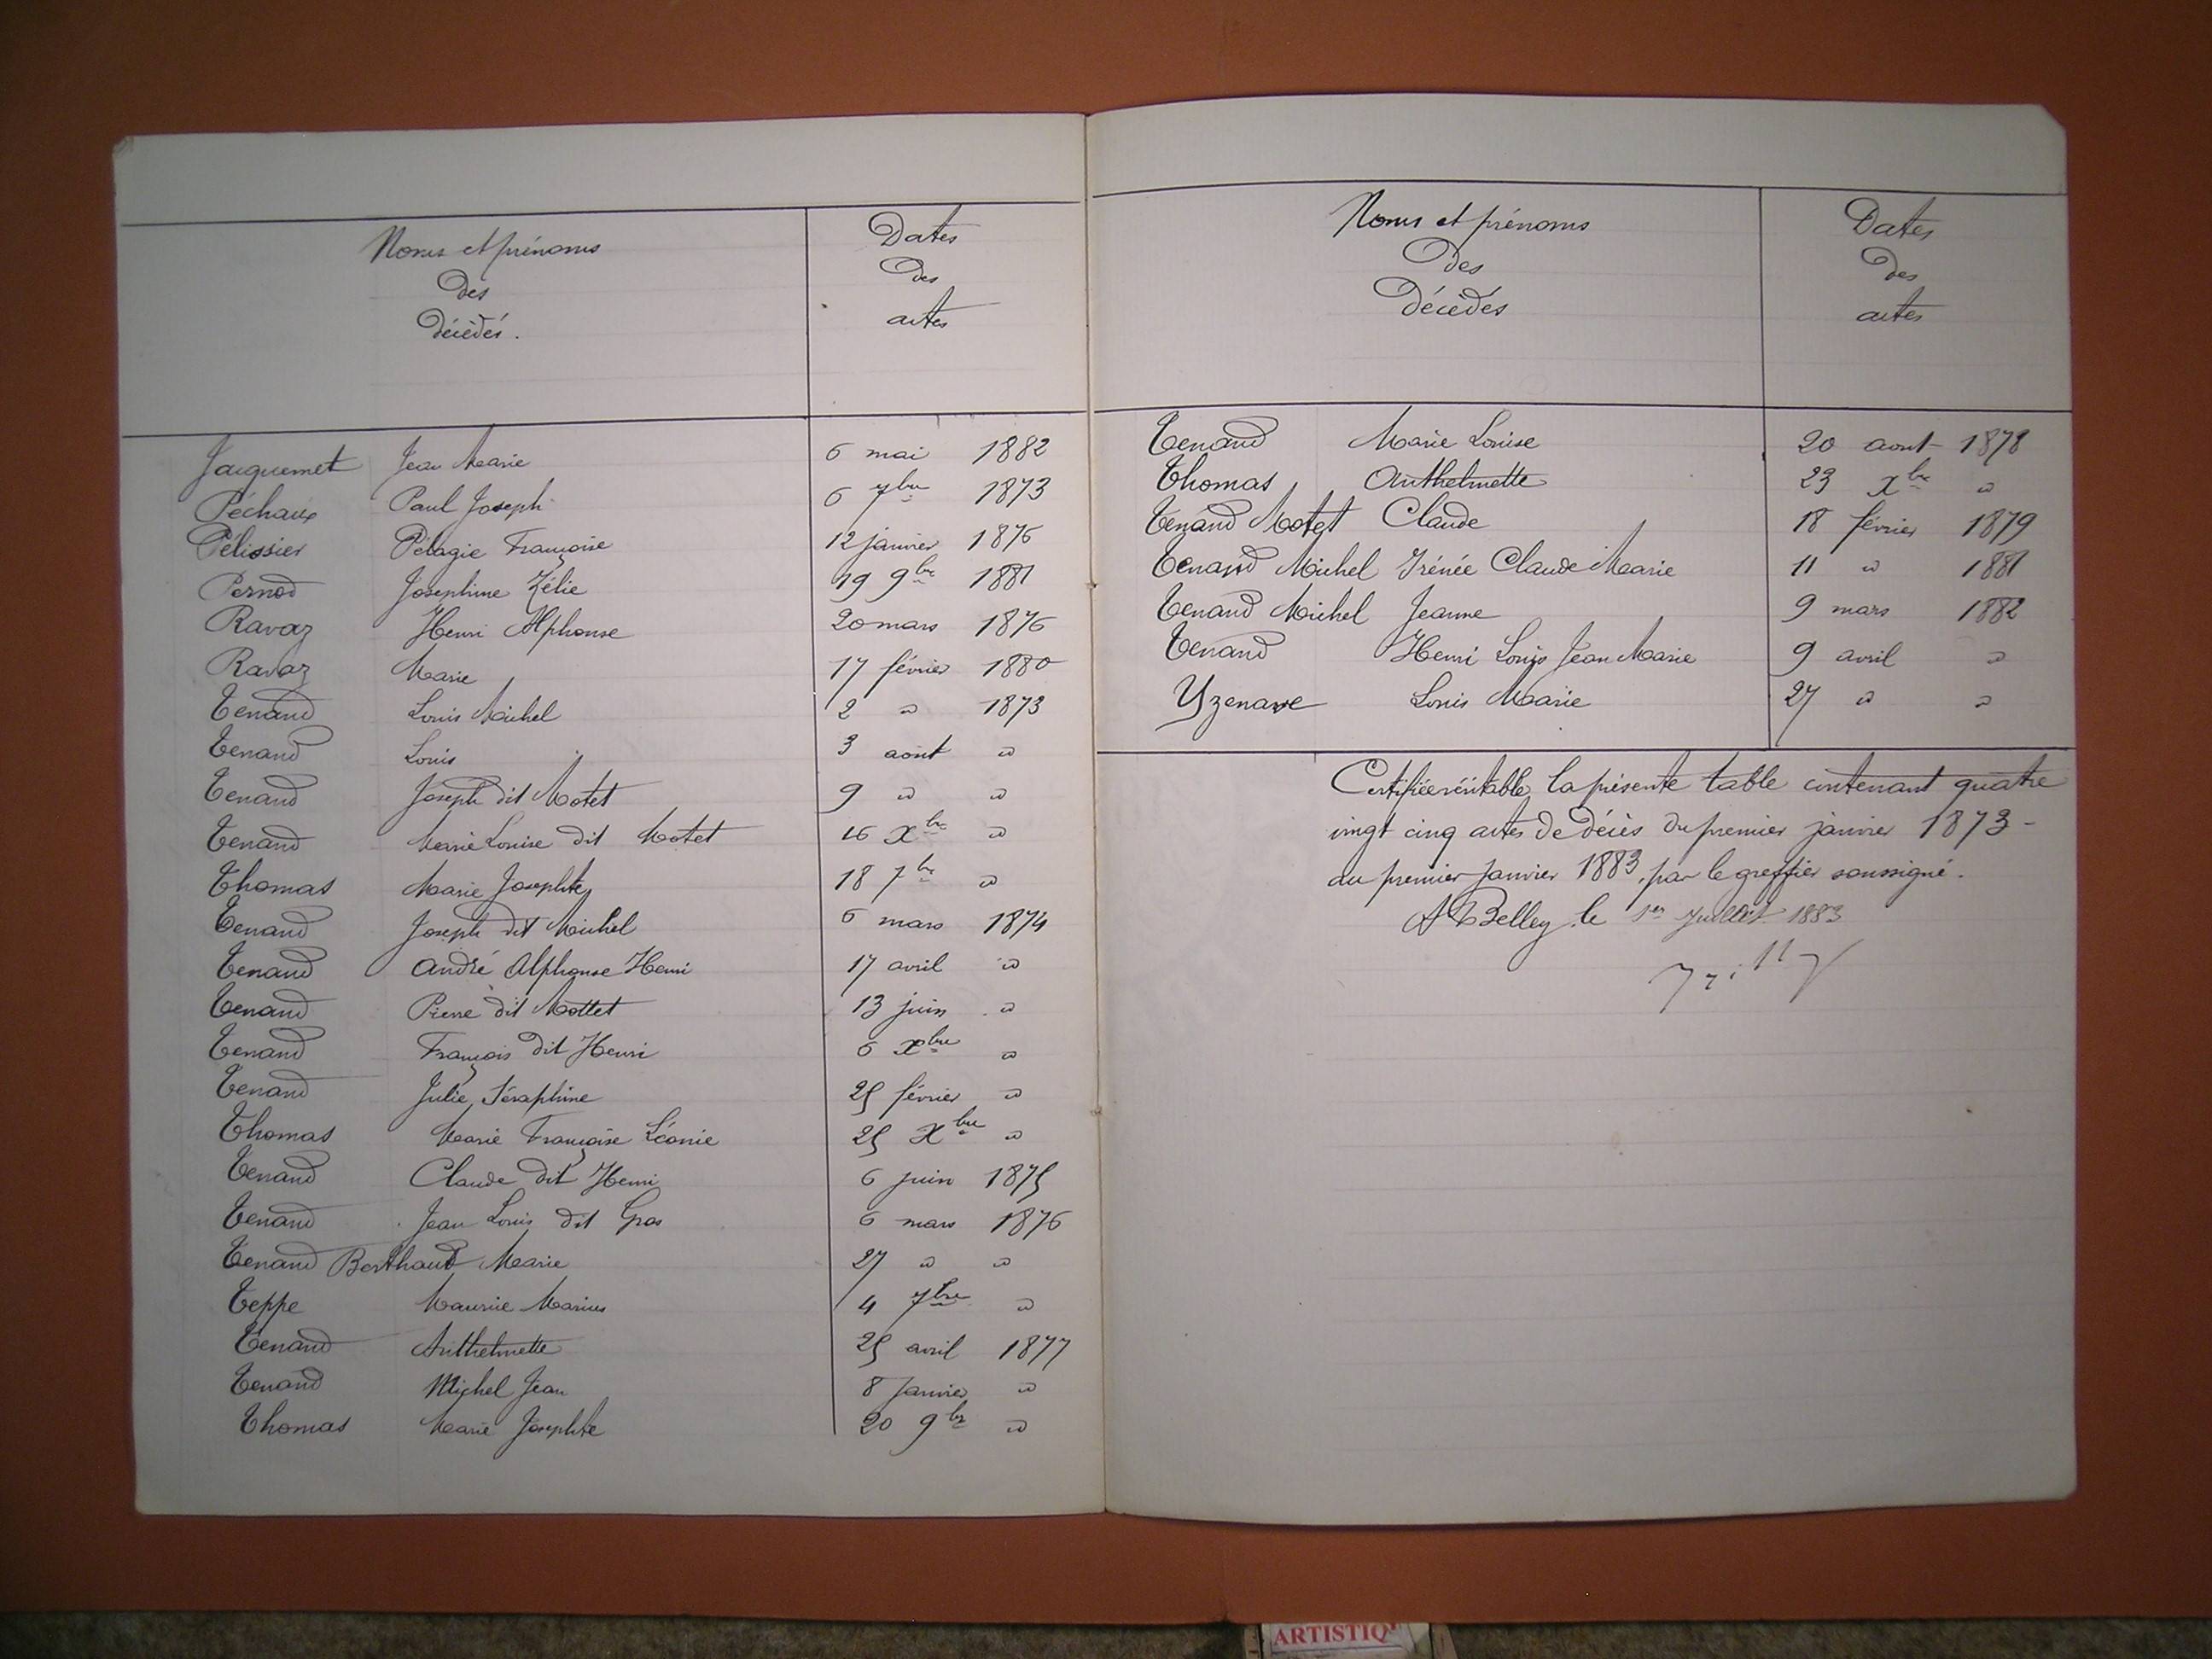 Noms et prénoms
des
décédés.
Dates
des
actes
Jacquemet Jean Marie 6 mai 1882
Péchaux Paul Joseph 6 7bre 1873
Pélissier Pélagie Françoise 12 janvier 1876
Pernod Joséphine Zélie 19 9bre 1881
Ravaz Henri Alphonse 20 mars 1876
Ravaz Marie 17 février 1880
Tenand Louis Michel 2 " 1873
Tenand Louis 3 août "
Tenand Joseph dit Motet 9 " "
Tenand Marie Louise dit Motet 16 Xbre "
Thomas Marie Josephte 18 7bre "
Tenand Joseph dit Michel 6 mars 1874
Tenand André Alphonse Henri 17 avril "
Tenand Pierre dit Mottet 13 juin "
Tenand François dit Henri 6 Xbre "
Tenand Julie Séraphine 25 février "
Thomas Marie Françoise Léonie 25 Xbre "
Tenand Claude dit Henri 6 juin 1875
Tenand Jean Louis dit Gros 6 mars 1876
Tenand Berthaud Marie 27 " "
Teppe Maurice Marius 4 7bre "
Tenand Anthelmette 25 avril 1877
Tenand Michel Jean 8 Janvier "
Thomas Marie Josephte 20 9bre "
Noms et prénoms
des
décédés
Dates
des
actes
Tenand Marie Louise 20 aout 1878
Thomas Anthelmette 23 Xbre "
Tenand Motet Claude 18 février 1879
Tenand Michel Irénée Claude Marie 11 " 1881
Tenand Michel Jeanne 9 mars 1882
Tenand Henri Louis Jean Marie 9 avril "
Yzenave Louis Marie 27 " "
Certifiée véritable la présente table contenant quatre
vingt cinq actes de décès du premier janvier 1873 -
au premier janvier 1883, par le greffier soussigné.
A Belley le 1er Juillet 1883
ARTISTIQ